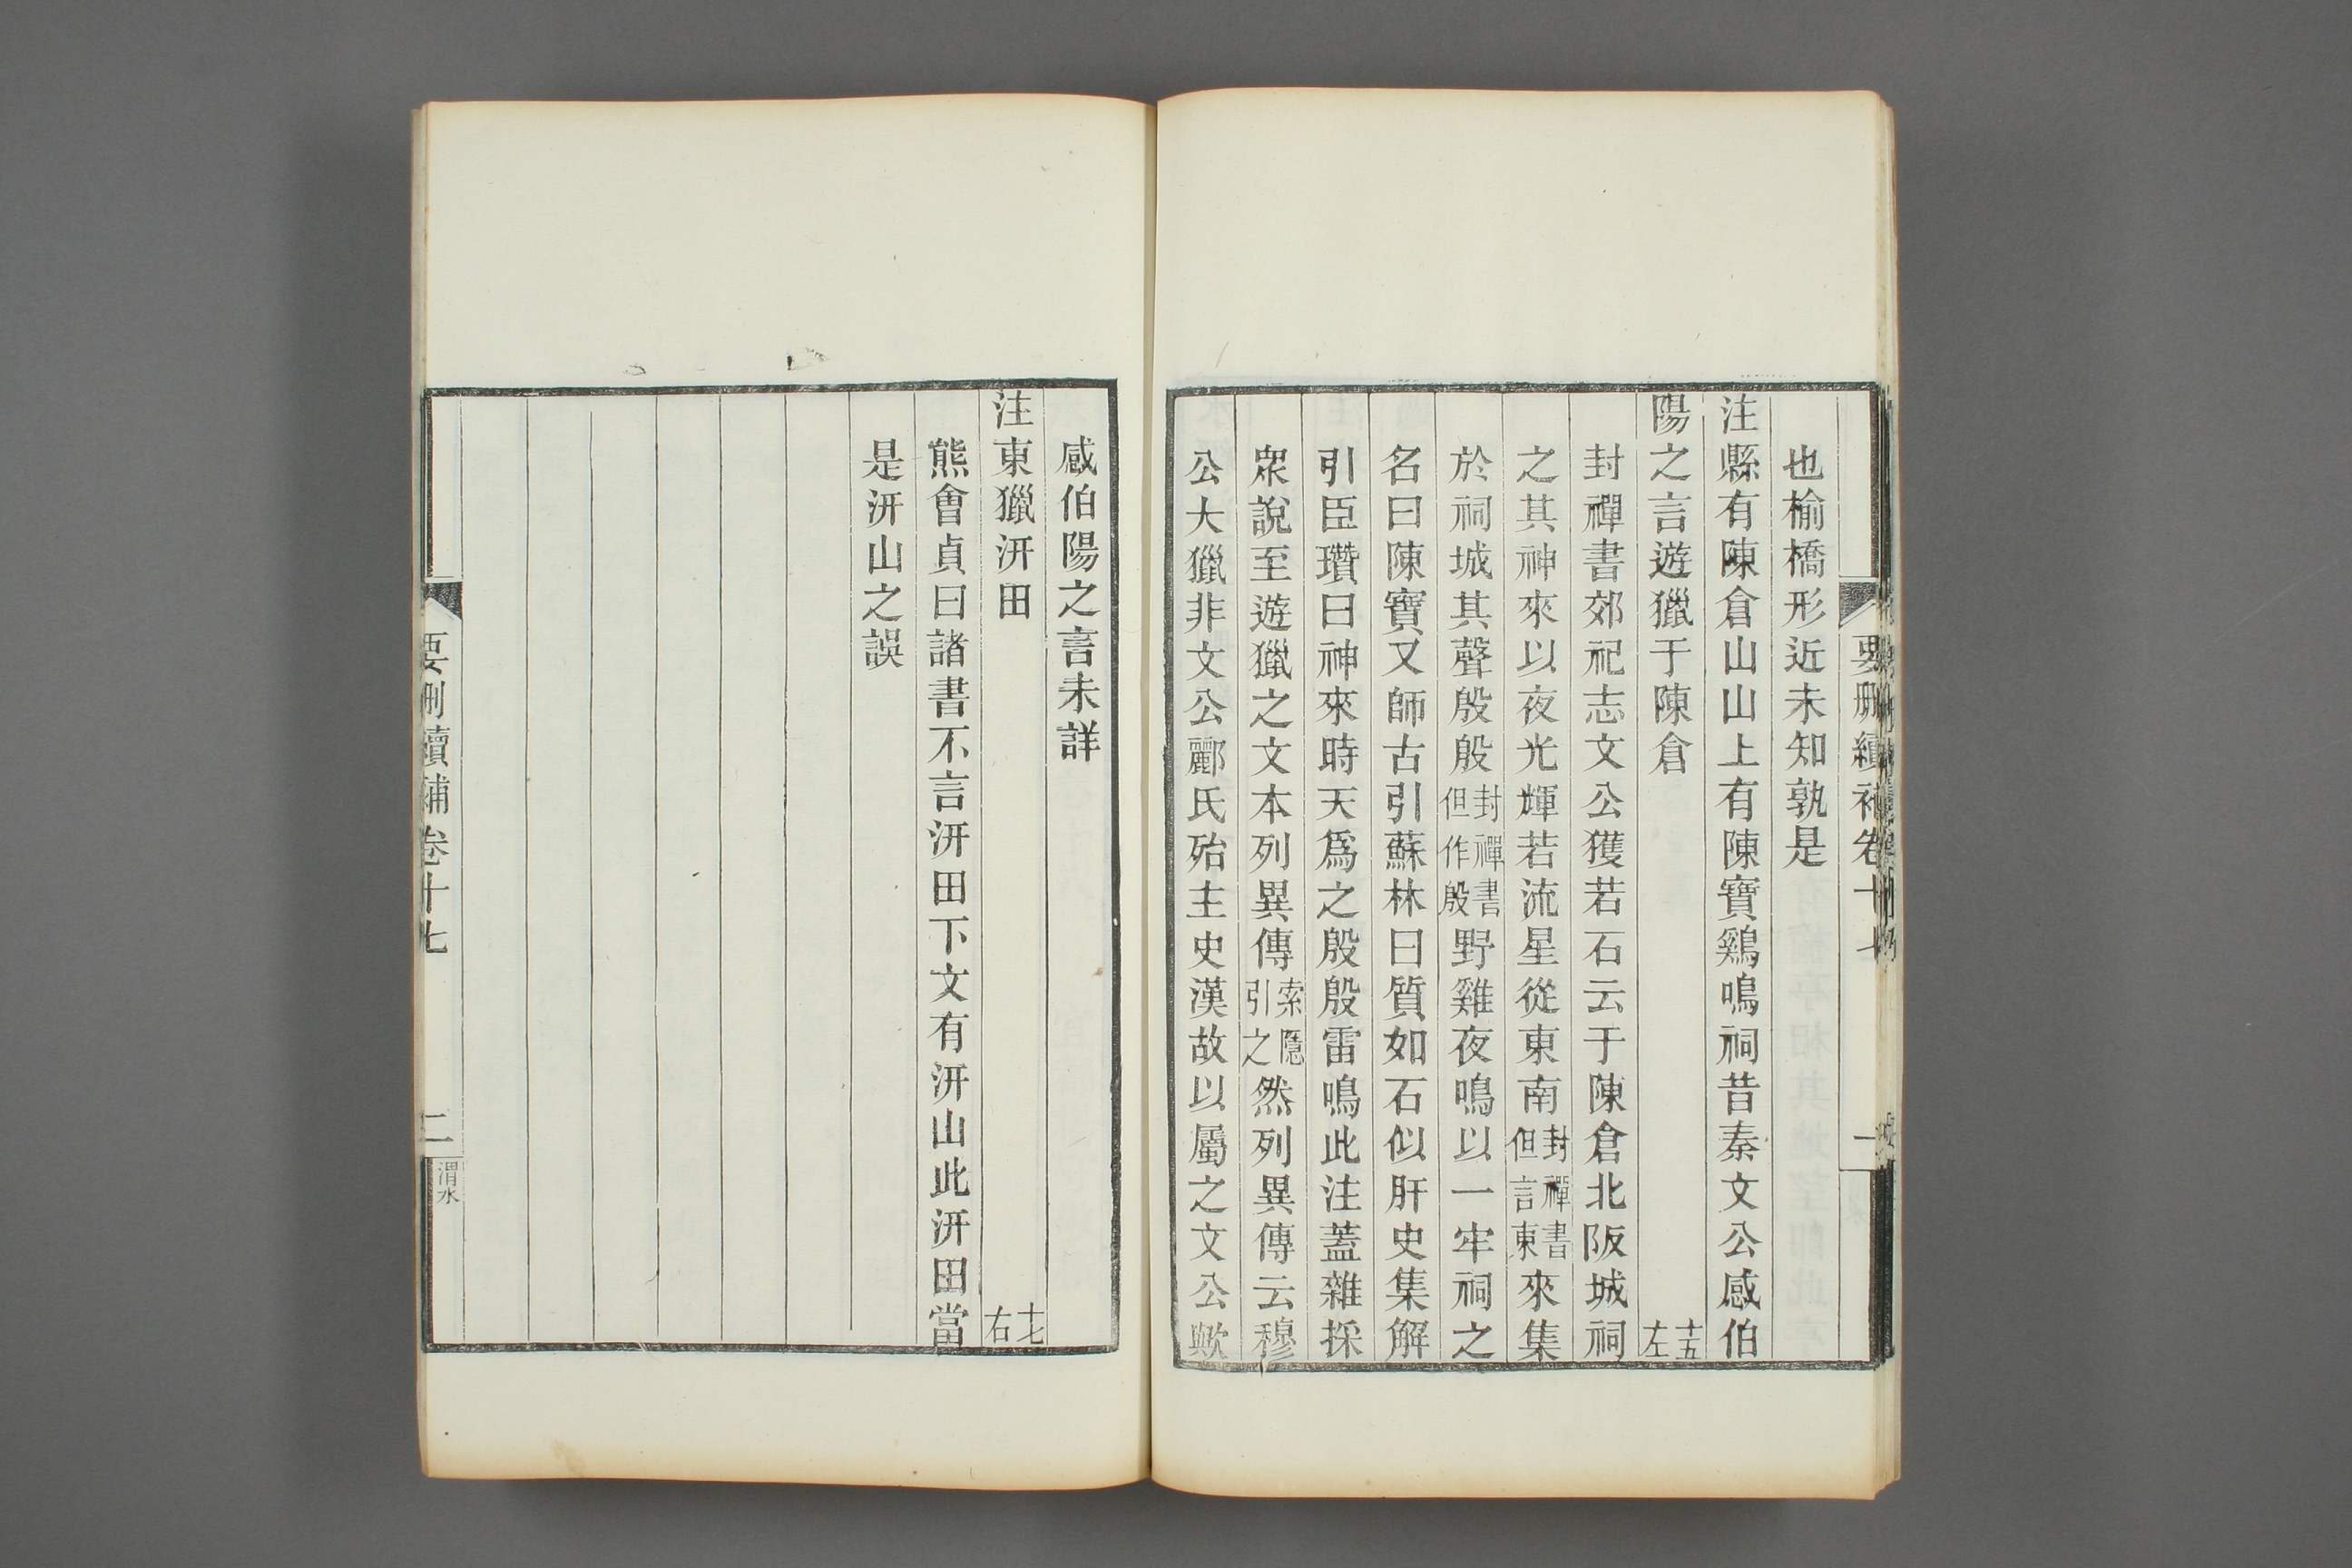 要刪續補卷十七
一
也榆橋形近未知孰是
注縣有陳倉山山上有陳寶鷄鳴祠昔秦文公感伯
陽之言遊獵于陳倉十五左
封禪書郊祀志文公獲若石云于陳倉北阪城祠
之其神來以夜光輝若流星從東南封禪書但言東來集
於祠城其聲殷殷封禪書但作殷野雞夜鳴以一牢祠之
名曰陳寶又師古引蘇林曰質如石似肝史集解
引臣瓚曰神來時天爲之殷殷雷鳴此注蓋雜採
衆說至遊獵之文本列異傳索隱引之然列異傳云穆
公大獵非文公酈氏殆主史漢故以屬之文公歟
感伯陽之言未詳
注東獵汧田十七右
熊會貞曰諸書不言汧田下文有汧山此汧田當
是汧山之誤
要刪續補卷十七
二
渭水